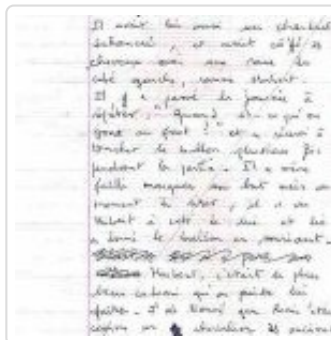 Il avait lui aussi un chandail
, et avait coiffé ses
cheveux avec une raie du
côté gauche, comme Hubert.
Il y a passé la journée à
répéter : "Quand est-ce qu'on
joue au foot ?" et a réussi à
toucher le ballon plusieurs fois
pendant la partie. Il a même
failli marquer un but mais au
moment de tirer, il a vu
Hubert à côté de lui et lui
a donné le ballon en souriant.
Hubert, c'était le plus
beau cadeau qu'on puisse lui
faire. J'ai trouvé que
comme un chevalier